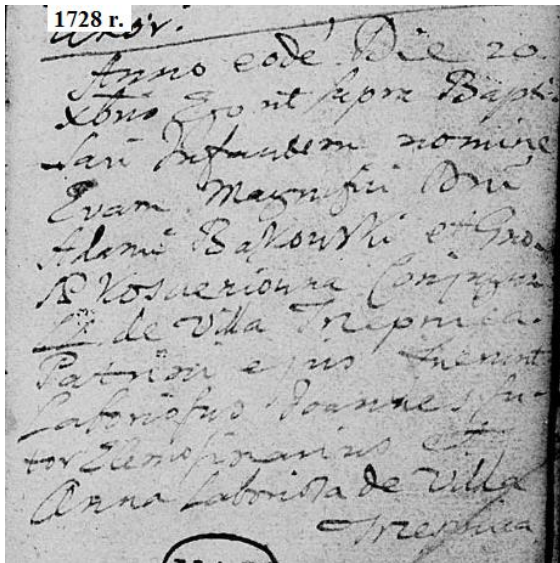 1728 r.
uxor.
Anno eodē Die 20
Xbris Ego ut supra Bapti
savi Infantem nomine
Evam Magnifici Dni
Adami Bąkowski et
Conjugum
LL de Villa Trzepnica.
Patrini ejus fuerunt
Laboriosus Joannes su-
tor Elemosinarius et
Anna Laboriosa de Villa
Trzepnica